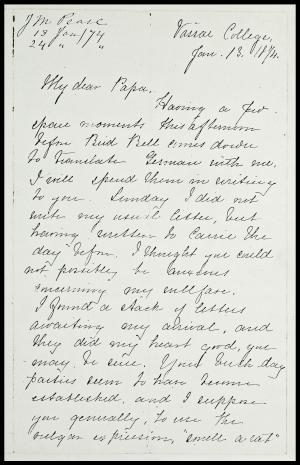 J M Pease
13 Jan/74
24 " "
Vassar College,
Jan. 13. 1874.
My dear Papa,
Having a few
spare moments this afternoon
before Bird Bell comes down
to translate German with me,
I will spend them in writing
to you. Sunday I did not
write my usual letter, but
having written to Carrie the
day before, I thought you could
not possibly be anxious
concerning my welfare.
I found a stack of letters
awaiting my arrival, and
they did my heart good, you
may be sure. Your birth day
parties seem to have become
established, and I suppose
you generally, to use the
vulgar expression, "smell a rat"